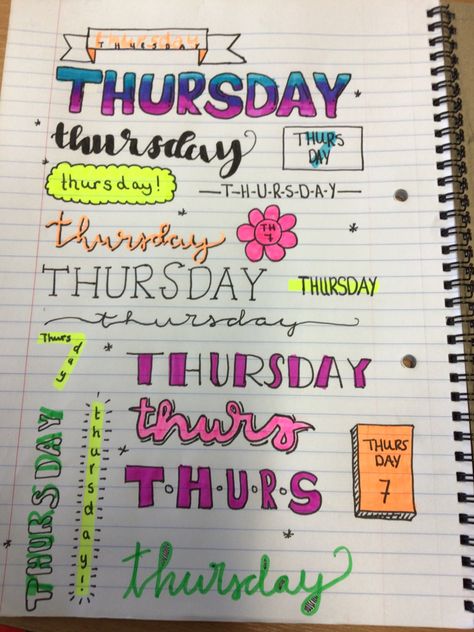 thursday
THURSDAY
THURSDAY
thursday
THURS
DAY
7
thursday!
T-H-U-R-S-D-A-Y
thursday
TH
7
THURSDAY
THURSDAY
thursday
Thursday
THURSDAY
thurs
THURSDAY
thursday!
T·H·U·R·S
THURS
DAY
7
thursday